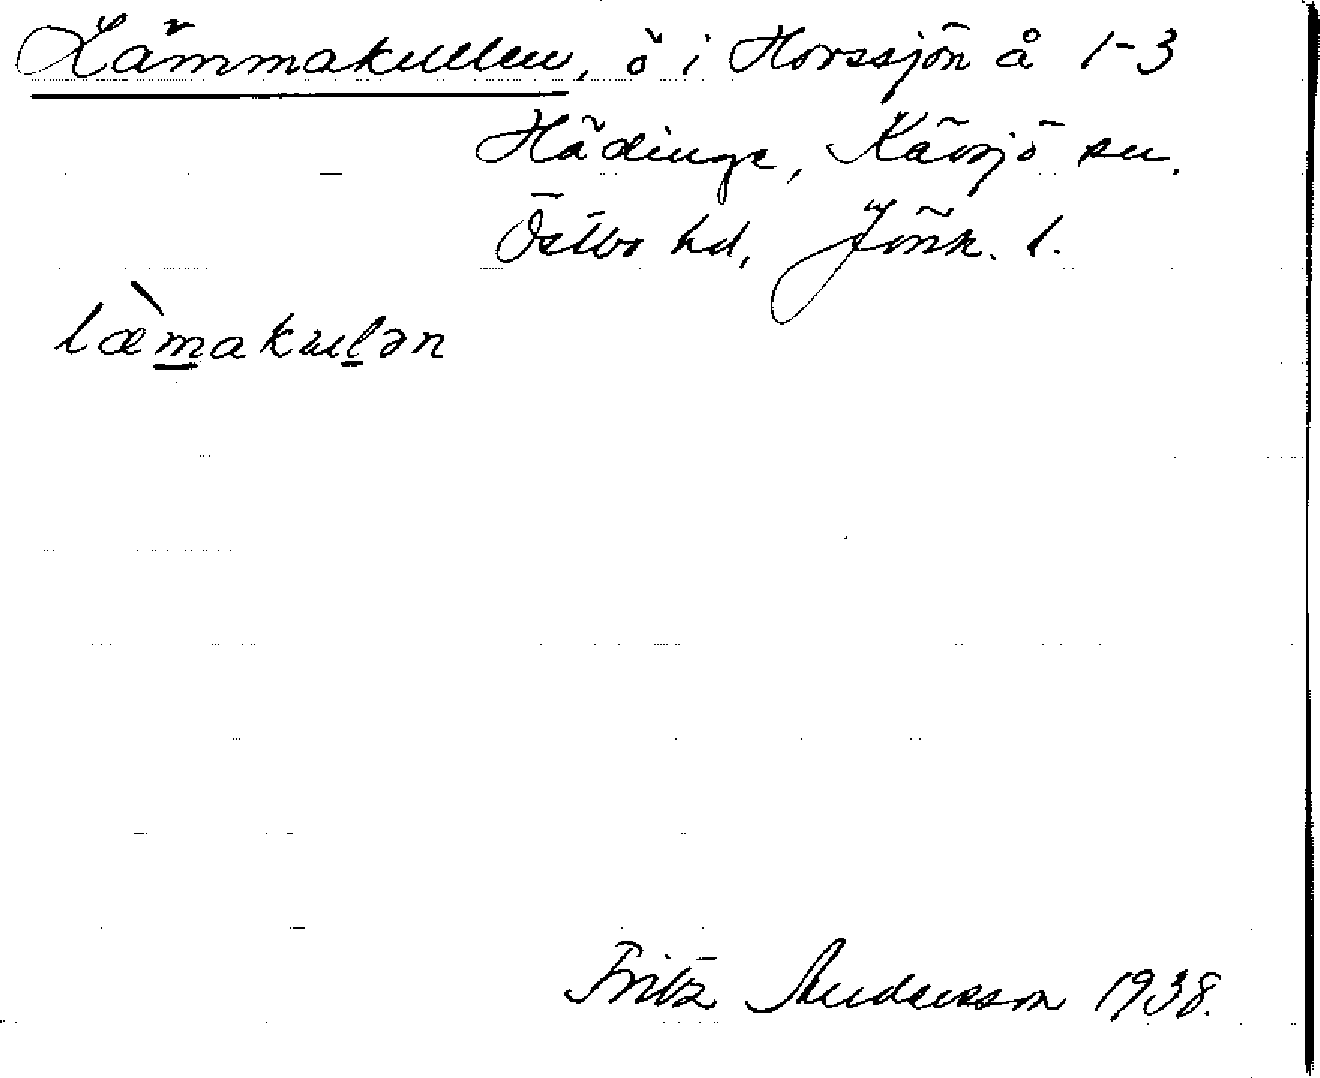 Lämmakullen, ö i Horssjön å 1-3
Hädinge, Kävsjö sn.
Östbo hd, Jönk. l.
læ̀makulən
Fritz Andersson 1938.